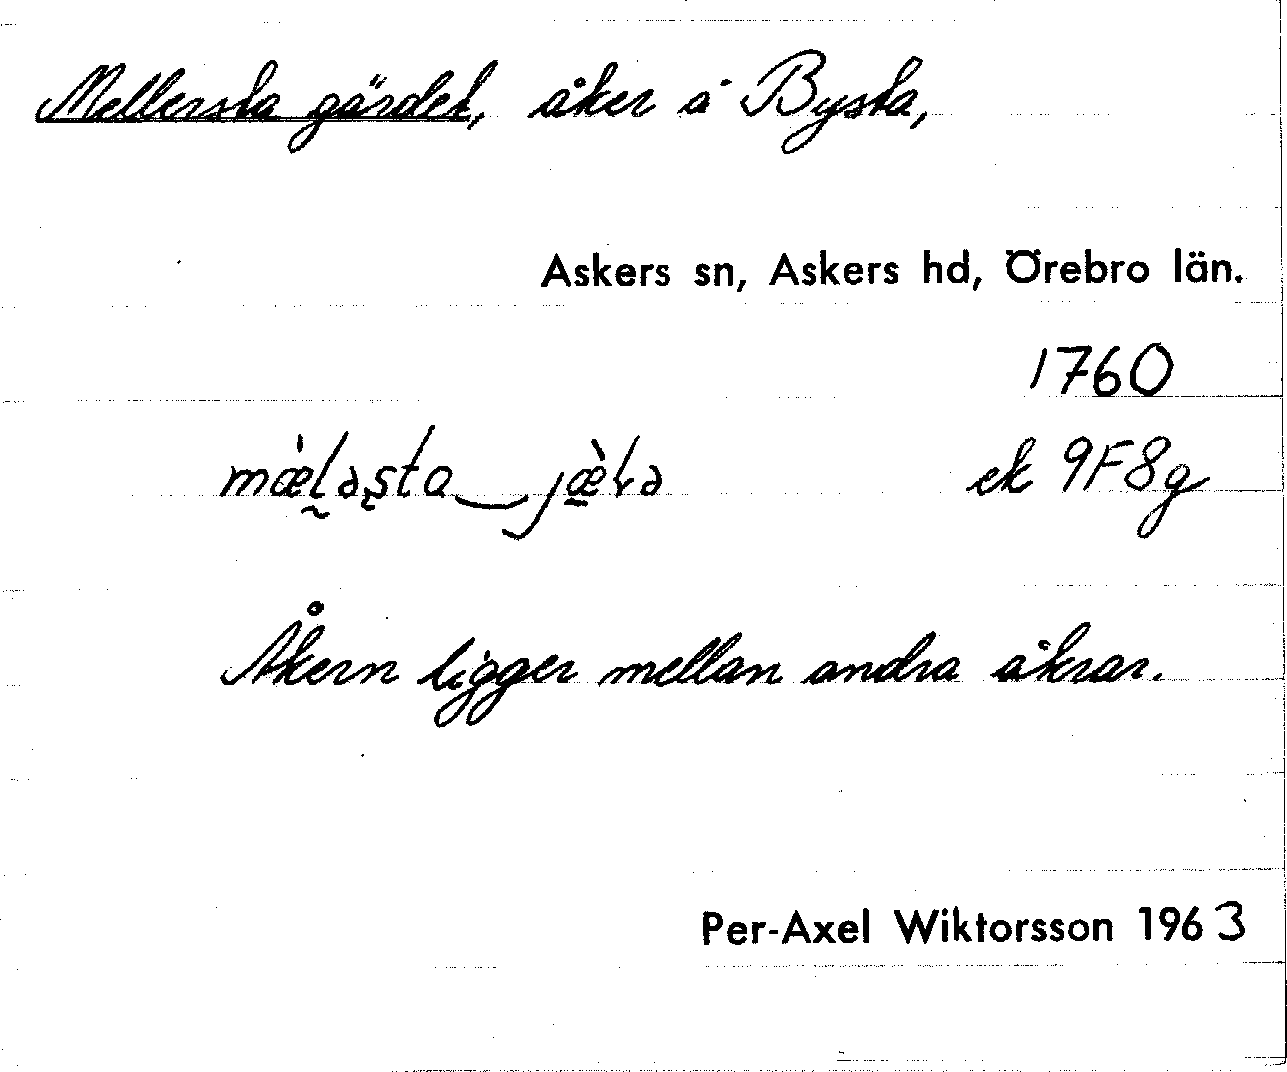 Mellersta gärdet, åker å Bysta,
Askers sn, Askers hd, Örebro län.
1760
mæ̀l̰əşta‿jæ̀ɽə ek 9F8g
Åkern ligger mellan andra åkrar.
Per-Axel Wiktorsson 1963